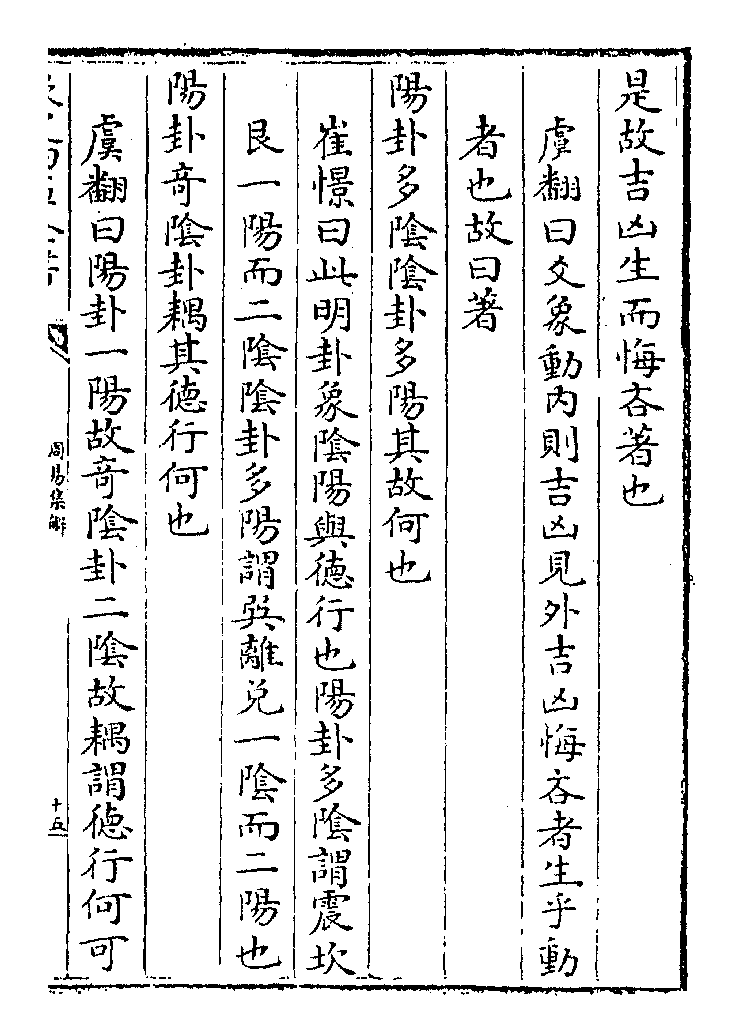 是故吉凶生而悔吝著也
虞翻曰爻象動内則吉凶見外吉凶悔吝者生乎動
者也故曰著
陽卦多陰陰卦多陽其故何也
崔憬曰此明卦象陰陽與德行也陽卦多陰謂震坎
艮一陽而二陰陰卦多陽謂巽離兌一陰而二陽也
陽卦竒陰卦耦其德行何也
虞翻曰陽卦一陽故竒陰卦二陰故耦謂德行何可
周易集解
十五